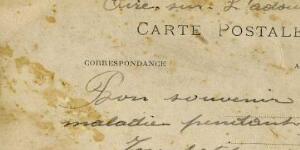 Aire sur l'Adour
CARTE POSTALE
CORRESPONDANCE
Bon souvenir
maladie pendant